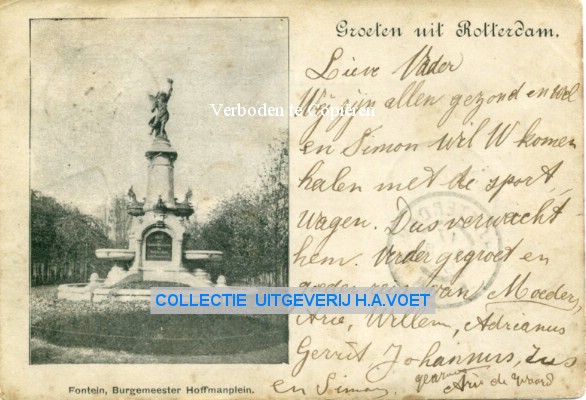 Groeten uit Rotterdam.
Lieve Vader
Wij zijn allen gezond en wel
en Simon wel W komen
halen met de sport
wagen. Dus verwacht
hem. Verder gegroet en
van Moeder,
Arie, Willem, Adrianus
Gerrit Johannus,
en Simon
Arie de Waard
Verboden te Copiëren
COLLECTIE UITGEVERIJ H.A.VOET
Fontein, Burgemeester Hoffmanplein.